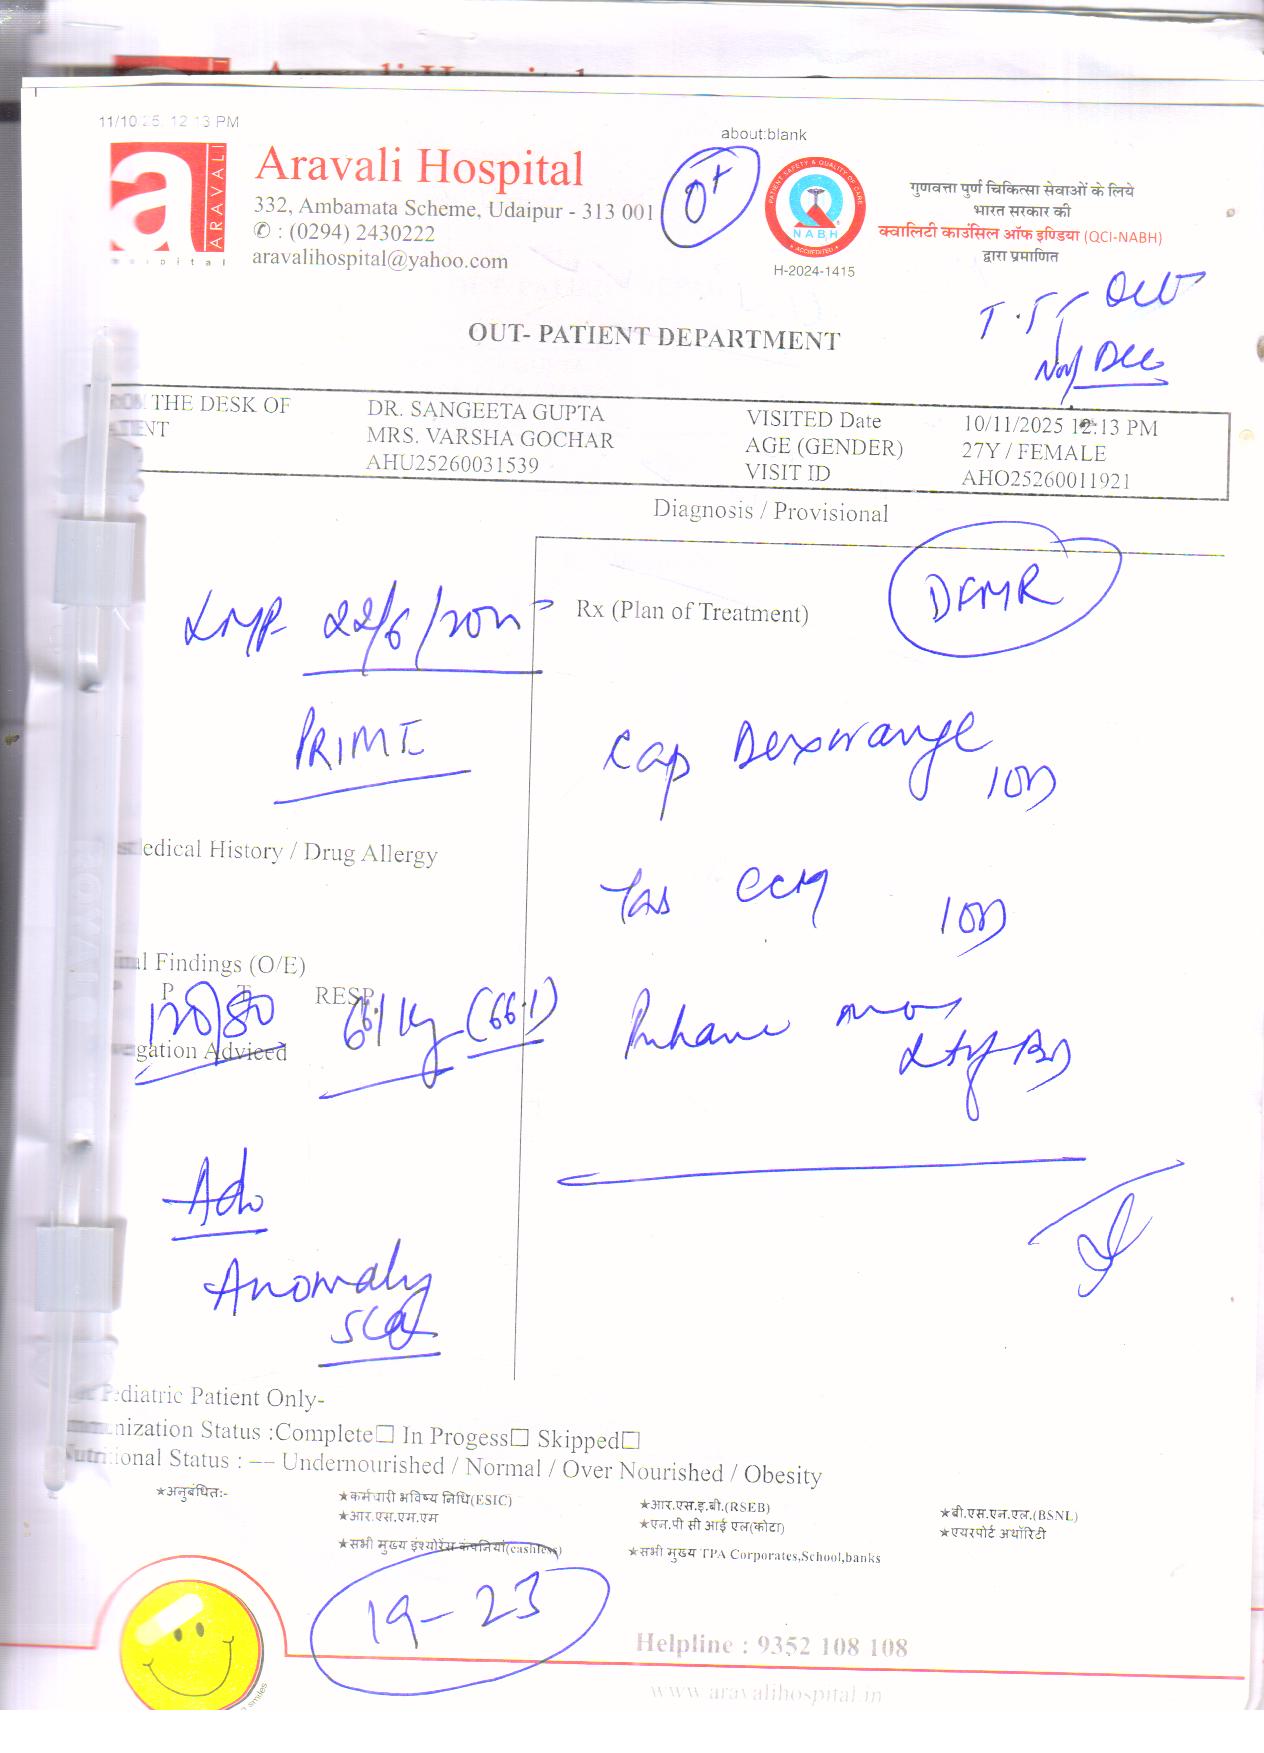 11/10/25, 12:13 PM
about:blank
Aravali Hospital
332, Ambamata Scheme, Udaipur - 313 001
✆ : (0294) 2430222
aravalihospital@yahoo.com
a
ARAVALI
hospital
O+
PATIENT SAFETY & QUALITY OF CARE
NABH
ACCREDITED
H-2024-1415
गुणवत्ता पुर्ण चिकित्सा सेवाओं के लिये
भारत सरकार की
क्वालिटी काउंसिल ऑफ इण्डिया (QCI-NABH)
द्वारा प्रमाणित
T.T
Nov/Dec
OUT- PATIENT DEPARTMENT
THE DESK OF DR. SANGEETA GUPTA VISITED Date 10/11/2025 12:13 PM
MRS. VARSHA GOCHAR AGE (GENDER) 27Y / FEMALE
AHU25260031539 VISIT ID AHO25260011921
Diagnosis / Provisional
LMP 22/6/2025
PRIMI
Rx (Plan of Treatment)
DFMR
Cap Dexorange
1OD
Tab CCM 1OD
edical History / Drug Allergy
al Findings (O/E)
P T RESP.
120/80 66/kg (66.1)
gation Adviced
Adv
Anomaly
Scan
diatric Patient Only-
nization Status :Complete☐ In Progess☐ Skipped☐
onal Status : –– Undernourished / Normal / Over Nourished / Obesity
★अनुबंधितः-
★कर्मचारी भविष्य निधि(ESIC)
★आर.एस.एम.एम
★सभी मुख्य इंश्योरेंस कंपनियां(cashless)
★आर.एस.इ.बी.(RSEB)
★एन.पी सी आई एल(कोटा)
★सभी मुख्य TPA Corporates,School,banks
★बी.एस.एन.एल.(BSNL)
★एयरपोर्ट अथॉरिटी
19-23
Helpline : 9352 108 108
www.aravalihospital.in
smiles